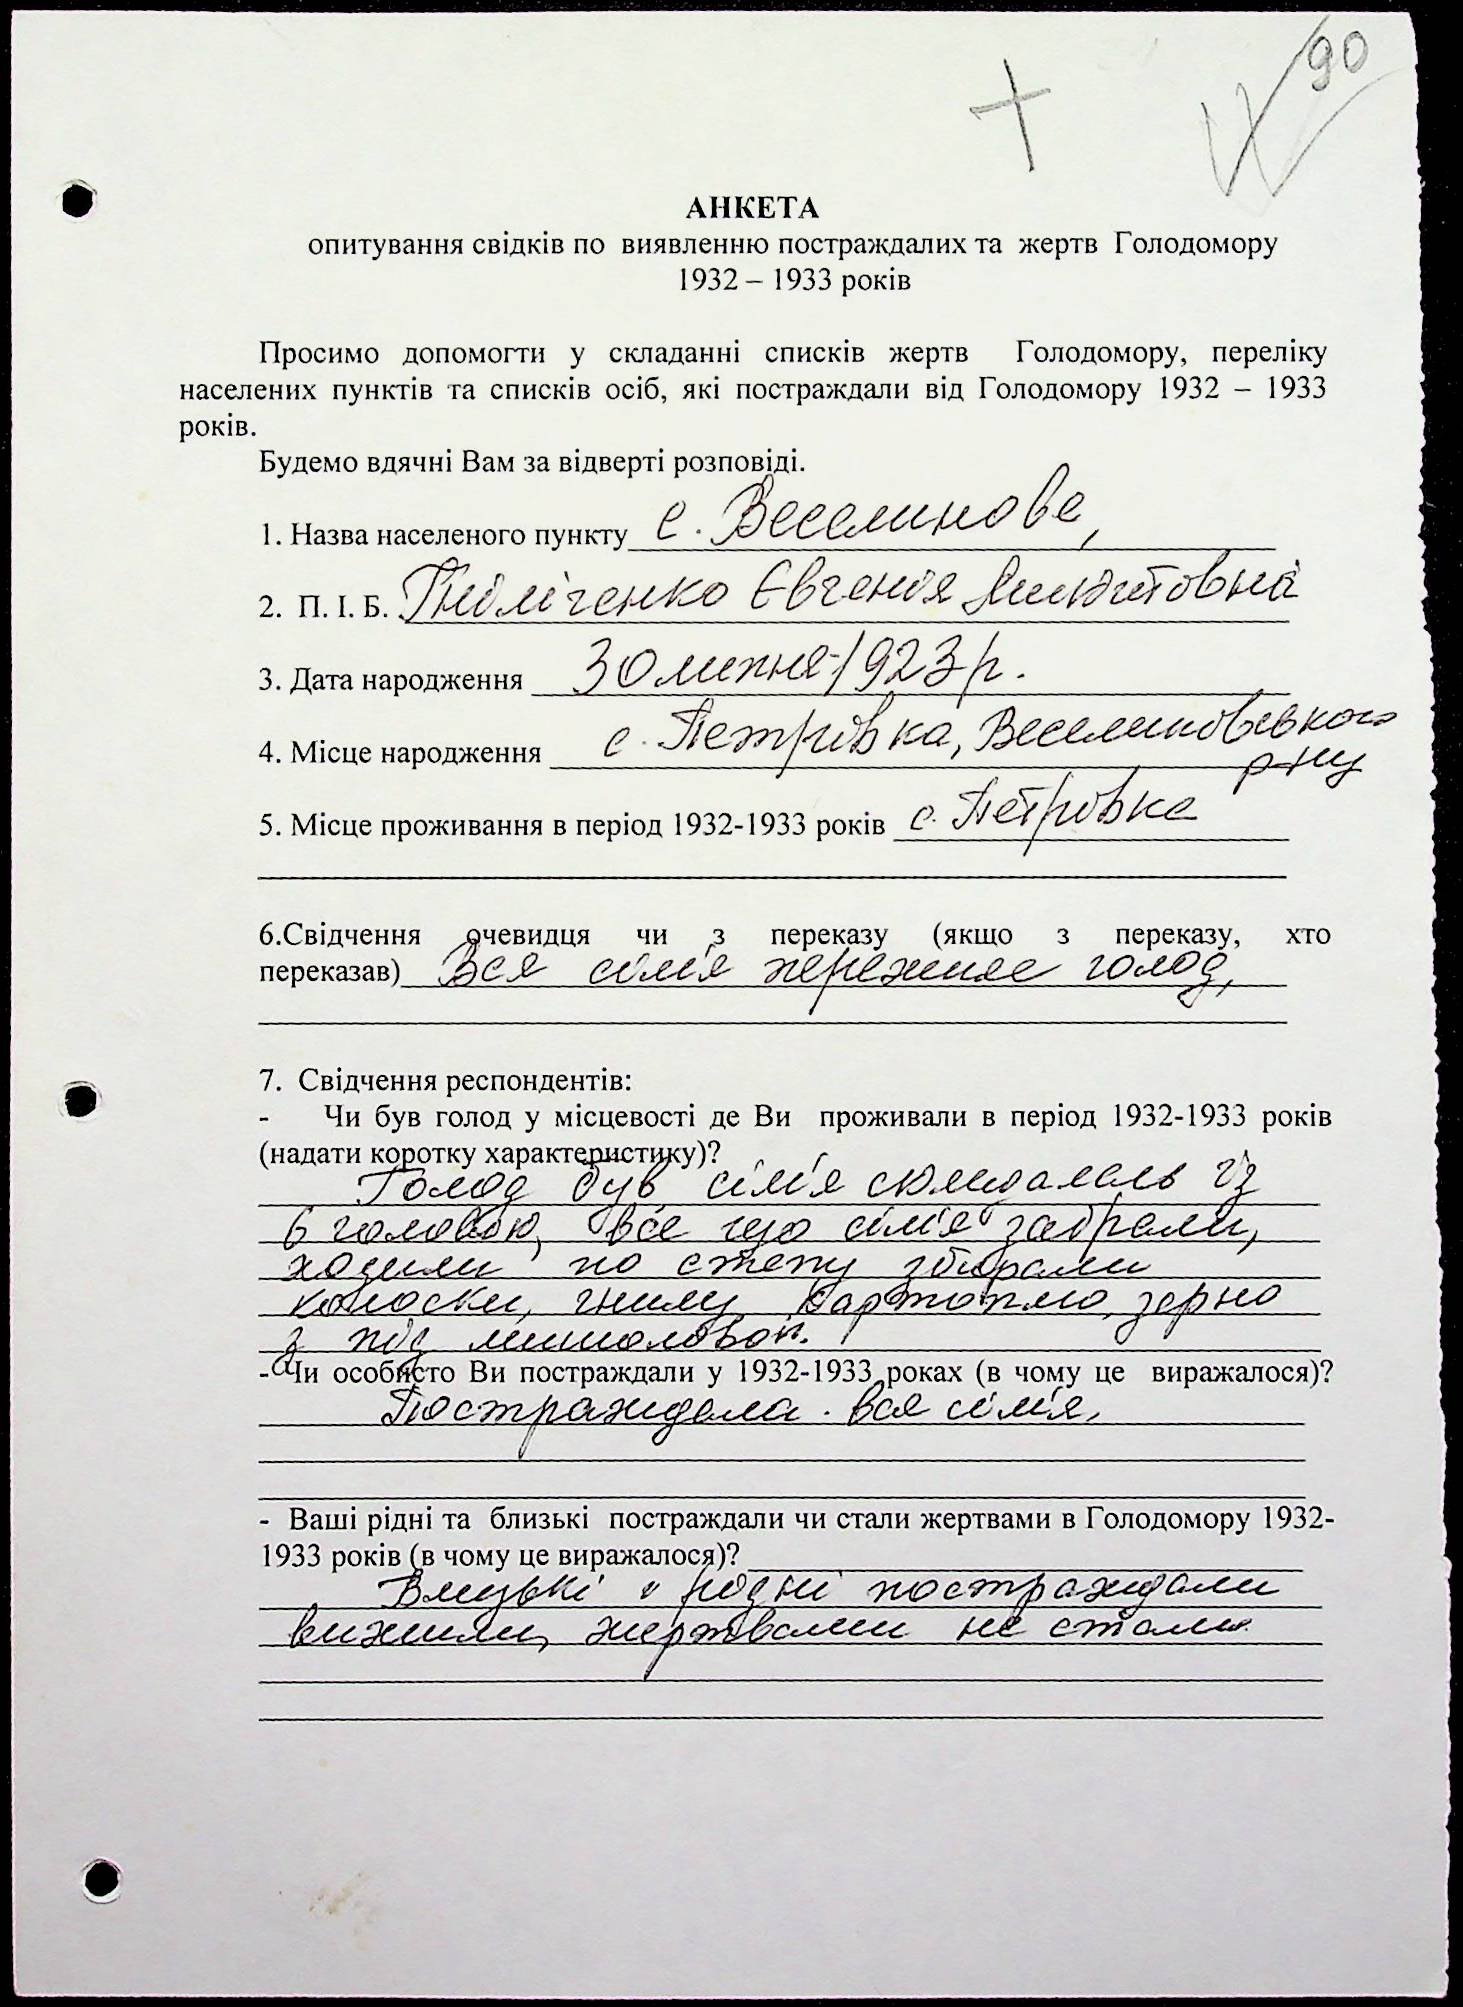 90
АНКЕТА
опитування свідків по виявленню постраждалих та жертв Голодомору
1932 – 1933 років
Просимо допомогти у складанні списків жертв Голодомору, переліку
населених пунктів та списків осіб, які постраждали від Голодомору 1932 – 1933
років.
Будемо вдячні Вам за відверті розповіді.
1. Назва населеного пункту с. Веселинове,
2. П. І. Б. Євгенія
3. Дата народження 30 липня 1923 р.
4. Місце народження с. Петрівка, Веселинівського
р-ну
5. Місце проживання в період 1932-1933 років с. Петрівка
6.Свідчення очевидця чи з переказу (якщо з переказу, хто
переказав) Вся сім'я пережила голод,
7. Свідчення респондентів:
- Чи був голод у місцевості де Ви проживали в період 1932-1933 років
(надати коротку характеристику)?
Голод був сім'я складалась із
6 голов, все що сім'я забрали,
ходили по степу збирали
колоски, гнилу картоплю, зерно
з під
- Чи особисто Ви постраждали у 1932-1933 роках (в чому це виражалося)?
Постраждала вся сім'я.
- Ваші рідні та близькі постраждали чи стали жертвами в Голодомору 1932-
1933 років (в чому це виражалося)?
Близькі і рідні постраждали
вижили, жертвами не стали